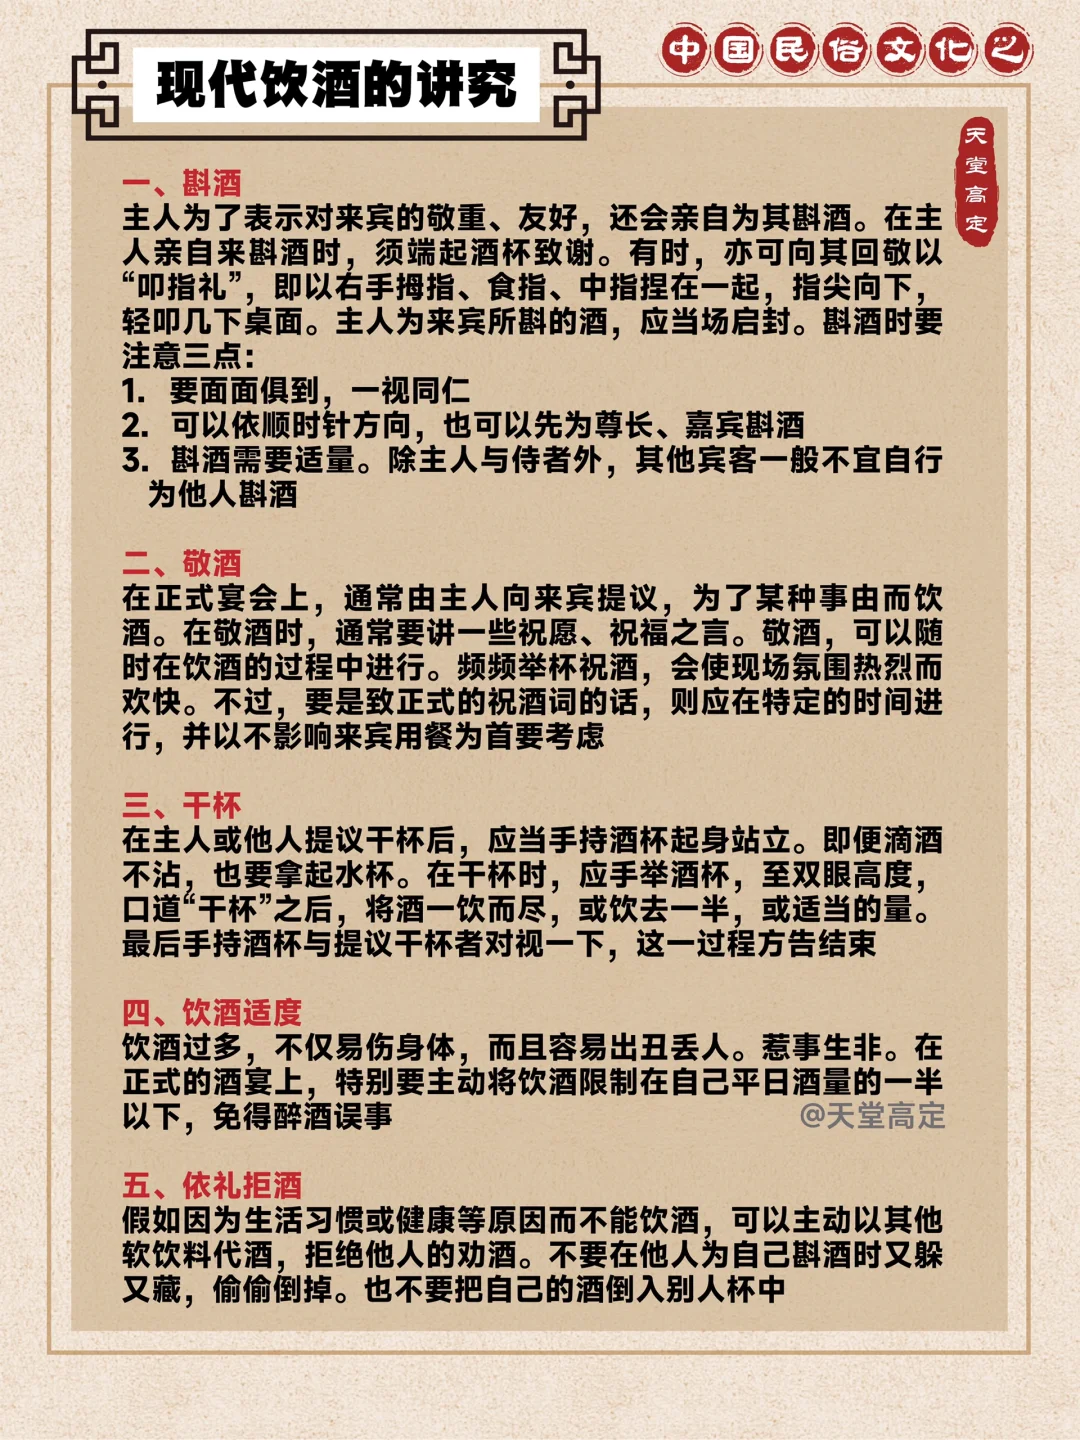 中国民俗文化之
现代饮酒的讲究
天堂高定
一、斟酒
主人为了表示对来宾的敬重、友好，还会亲自为其斟酒。在主
人亲自来斟酒时，须端起酒杯致谢。有时，亦可向其回敬以
“叩指礼”，即以右手拇指、食指、中指捏在一起，指尖向下，
轻叩几下桌面。主人为来宾所斟的酒，应当场启封。斟酒时要
注意三点：
1. 要面面俱到，一视同仁
2. 可以依顺时针方向，也可以先为尊长、嘉宾斟酒
3. 斟酒需要适量。除主人与侍者外，其他宾客一般不宜自行
为他人斟酒
二、敬酒
在正式宴会上，通常由主人向来宾提议，为了某种事由而饮
酒。在敬酒时，通常要讲一些祝愿、祝福之言。敬酒，可以随
时在饮酒的过程中进行。频频举杯祝酒，会使现场氛围热烈而
欢快。不过，要是致正式的祝酒词的话，则应在特定的时间进
行，并以不影响来宾用餐为首要考虑
三、干杯
在主人或他人提议干杯后，应当手持酒杯起身站立。即便滴酒
不沾，也要拿起水杯。在干杯时，应手举酒杯，至双眼高度，
口道“干杯”之后，将酒一饮而尽，或饮去一半，或适当的量。
最后手持酒杯与提议干杯者对视一下，这一过程方告结束
四、饮酒适度
饮酒过多，不仅易伤身体，而且容易出丑丢人。惹事生非。在
正式的酒宴上，特别要主动将饮酒限制在自己平日酒量的一半
以下，免得醉酒误事
@天堂高定
五、依礼拒酒
假如因为生活习惯或健康等原因而不能饮酒，可以主动以其他
软饮料代酒，拒绝他人的劝酒。不要在他人为自己斟酒时又躲
又藏，偷偷倒掉。也不要把自己的酒倒入别人杯中